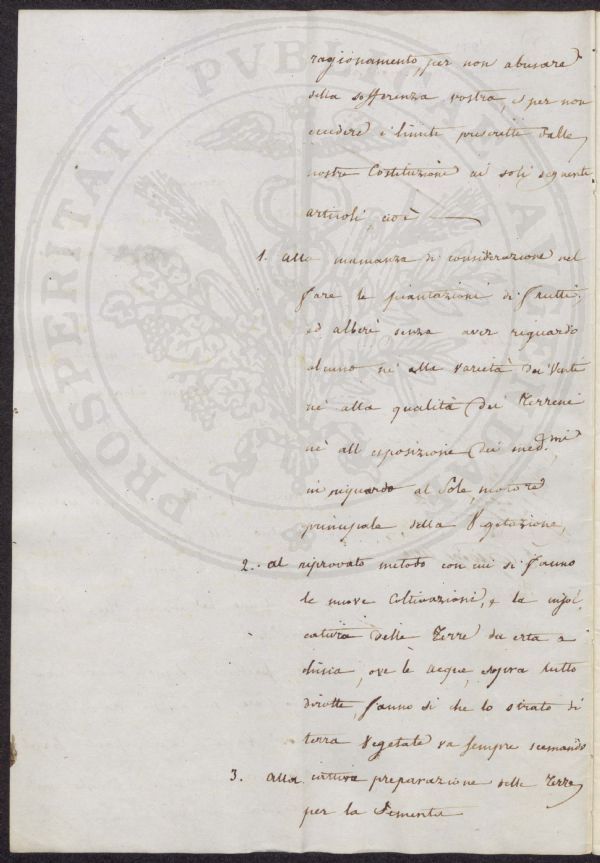 ragionamento, per non abusare
della sofferenza vostra, e per non
eccedere i limiti prescritti dalle
nostre Costituzioni ai soli seguenti
articoli, cioè
1. alla mancanza di considerazione nel
fare le piantazioni di frutti,
ed alberi senza aver riguardo
alcuno nè alla varietà dei Venti
nè alla qualità dei Terreni
nè all'esposizione dei med.mi
in riguardo al Sole, motore
principale della Vegetazione,
2. al riprovato metodo con cui si fanno
le nuove Coltivazioni, e la
delle Terre da erta a
china, ove le acque, sopra tutto
dirotte, fanno si che lo strato di
terra Vegetale va sempre scemando
3. alla cattiva preparazione delle Terre
per la Sementa
PROSPERITATI PVBLICAE AVGENDAE